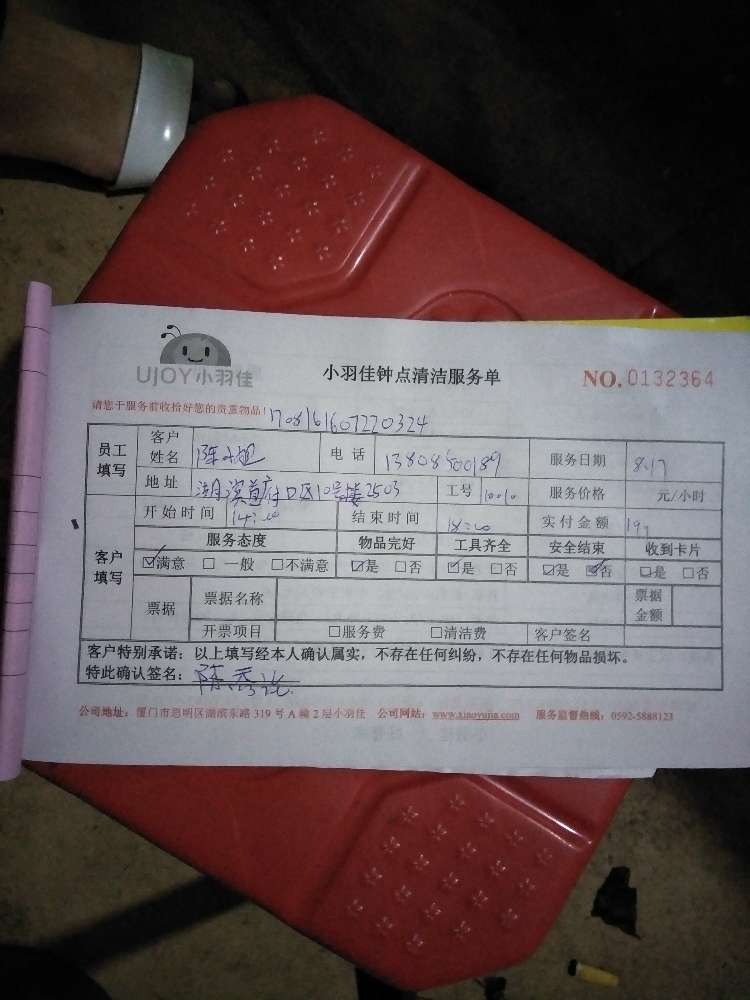 UJOY小羽佳
小羽佳钟点清洁服务单
NO. 0132364
请您于服务前收拾好您的贵重物品!
1708161607220324
员工填写 客户姓名 陈小姐 电话 13808500189 服务日期 8.17
地址 口区10号楼2503 工号 10010 服务价格 元/小时
客户填写 开始时间 14:00 结束时间 18:00 实付金额
服务态度 物品完好 工具齐全 安全结束 收到卡片
☑满意 □一般 □不满意 ☑是 □否 ☑是 □否 ☑是 ☑否 ☑是 □否
票据 票据名称 票据金额
开票项目 □服务费 □清洁费 客户签名
客户特别承诺:以上填写经本人确认属实,不存在任何纠纷,不存在任何物品损坏。
特此确认签名:陈
公司地址:厦门市思明区湖滨东路 319 号 A 幢 2 层小羽佳 公司网站:www.xiaoyujia.com 服务监督热线:0592-5888123